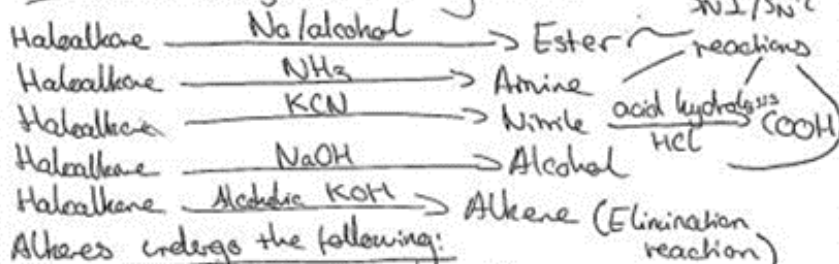 SN1/SN2
Haloalkane Na/alcohol → Ester reactions
Haloalkane NH3 → Amine
Haloalkane KCN → Nitrile acid hydrolysis HCl → COOH
Haloalkane NaOH → Alcohol
Haloalkane Alcoholic KOH → Alkene (Elimination reaction)
Alkenes undergo the following: